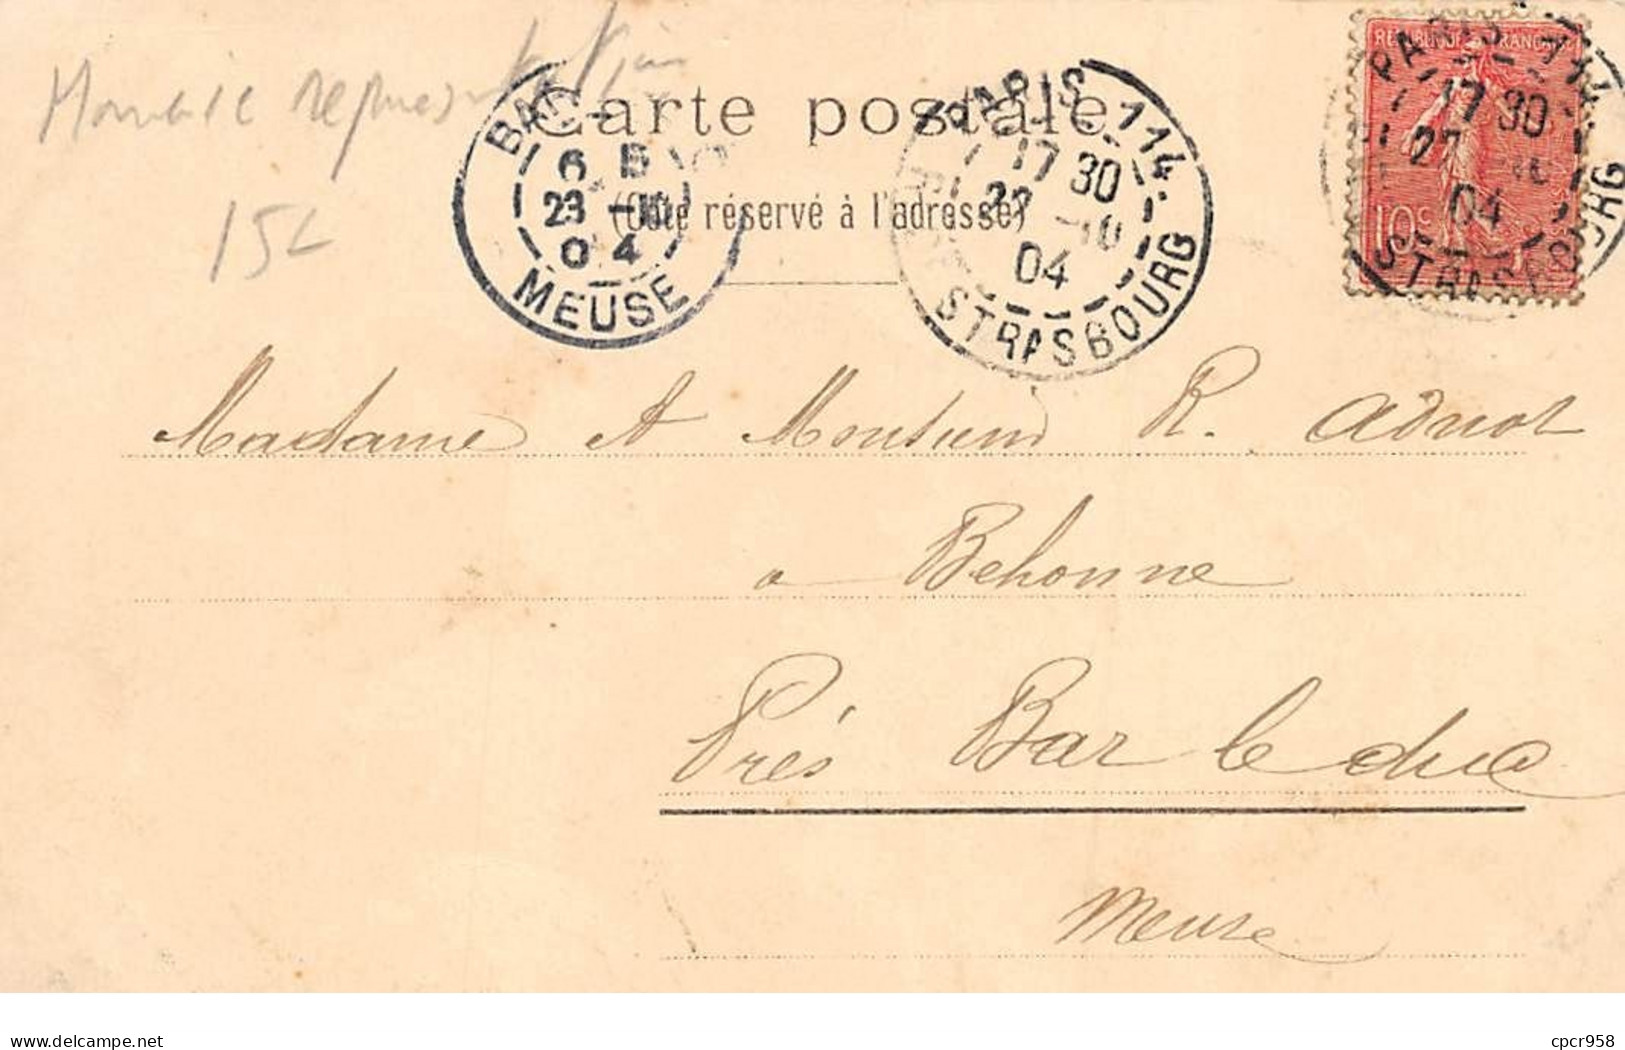 Carte postale
(Côté réservé à l'adresse)
15
6
23 -10
04
MEUSE
PARIS 114.
17 30
22 -10
04
STRASBOURG
REPUBLIQUE FRANÇAISE
10c
PARIS 114
17 30
22 -10
04
STRASBOURG
Madame et Monsieur R. Adnot
a Behonne
Près Bar le duc
Meuse
delcampe.net
cpcr958